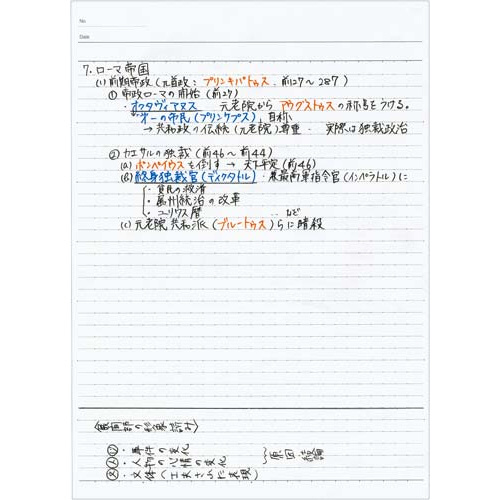 No.
Date
7. ローマ帝国
(1) 前期帝政(元首政:プリンキパトゥス. 前27〜287)
① 帝政ローマの開始(前27)
・オクタヴィアヌス 元老院から アウグストゥスの称号をうける。
「第一の市民(プリンケプス)」自称
→ 共和政の伝統(元老院)尊重. 実際は独裁政治
② カエサルの独裁(前46〜前44)
(a) ポンペイウスを倒す → 天下平定(前46)
(b) 終身独裁官(ディクタトル)・兼最高軍指令官(インペラトル)に
・貧民の救済
・属州統治の改革
・ユリウス暦 … など
(c) 元老院共和派(ブルートゥス)らに暗殺
・事件の変化
・人物の心情の変化
・文体(工夫された表現)
原因 結論